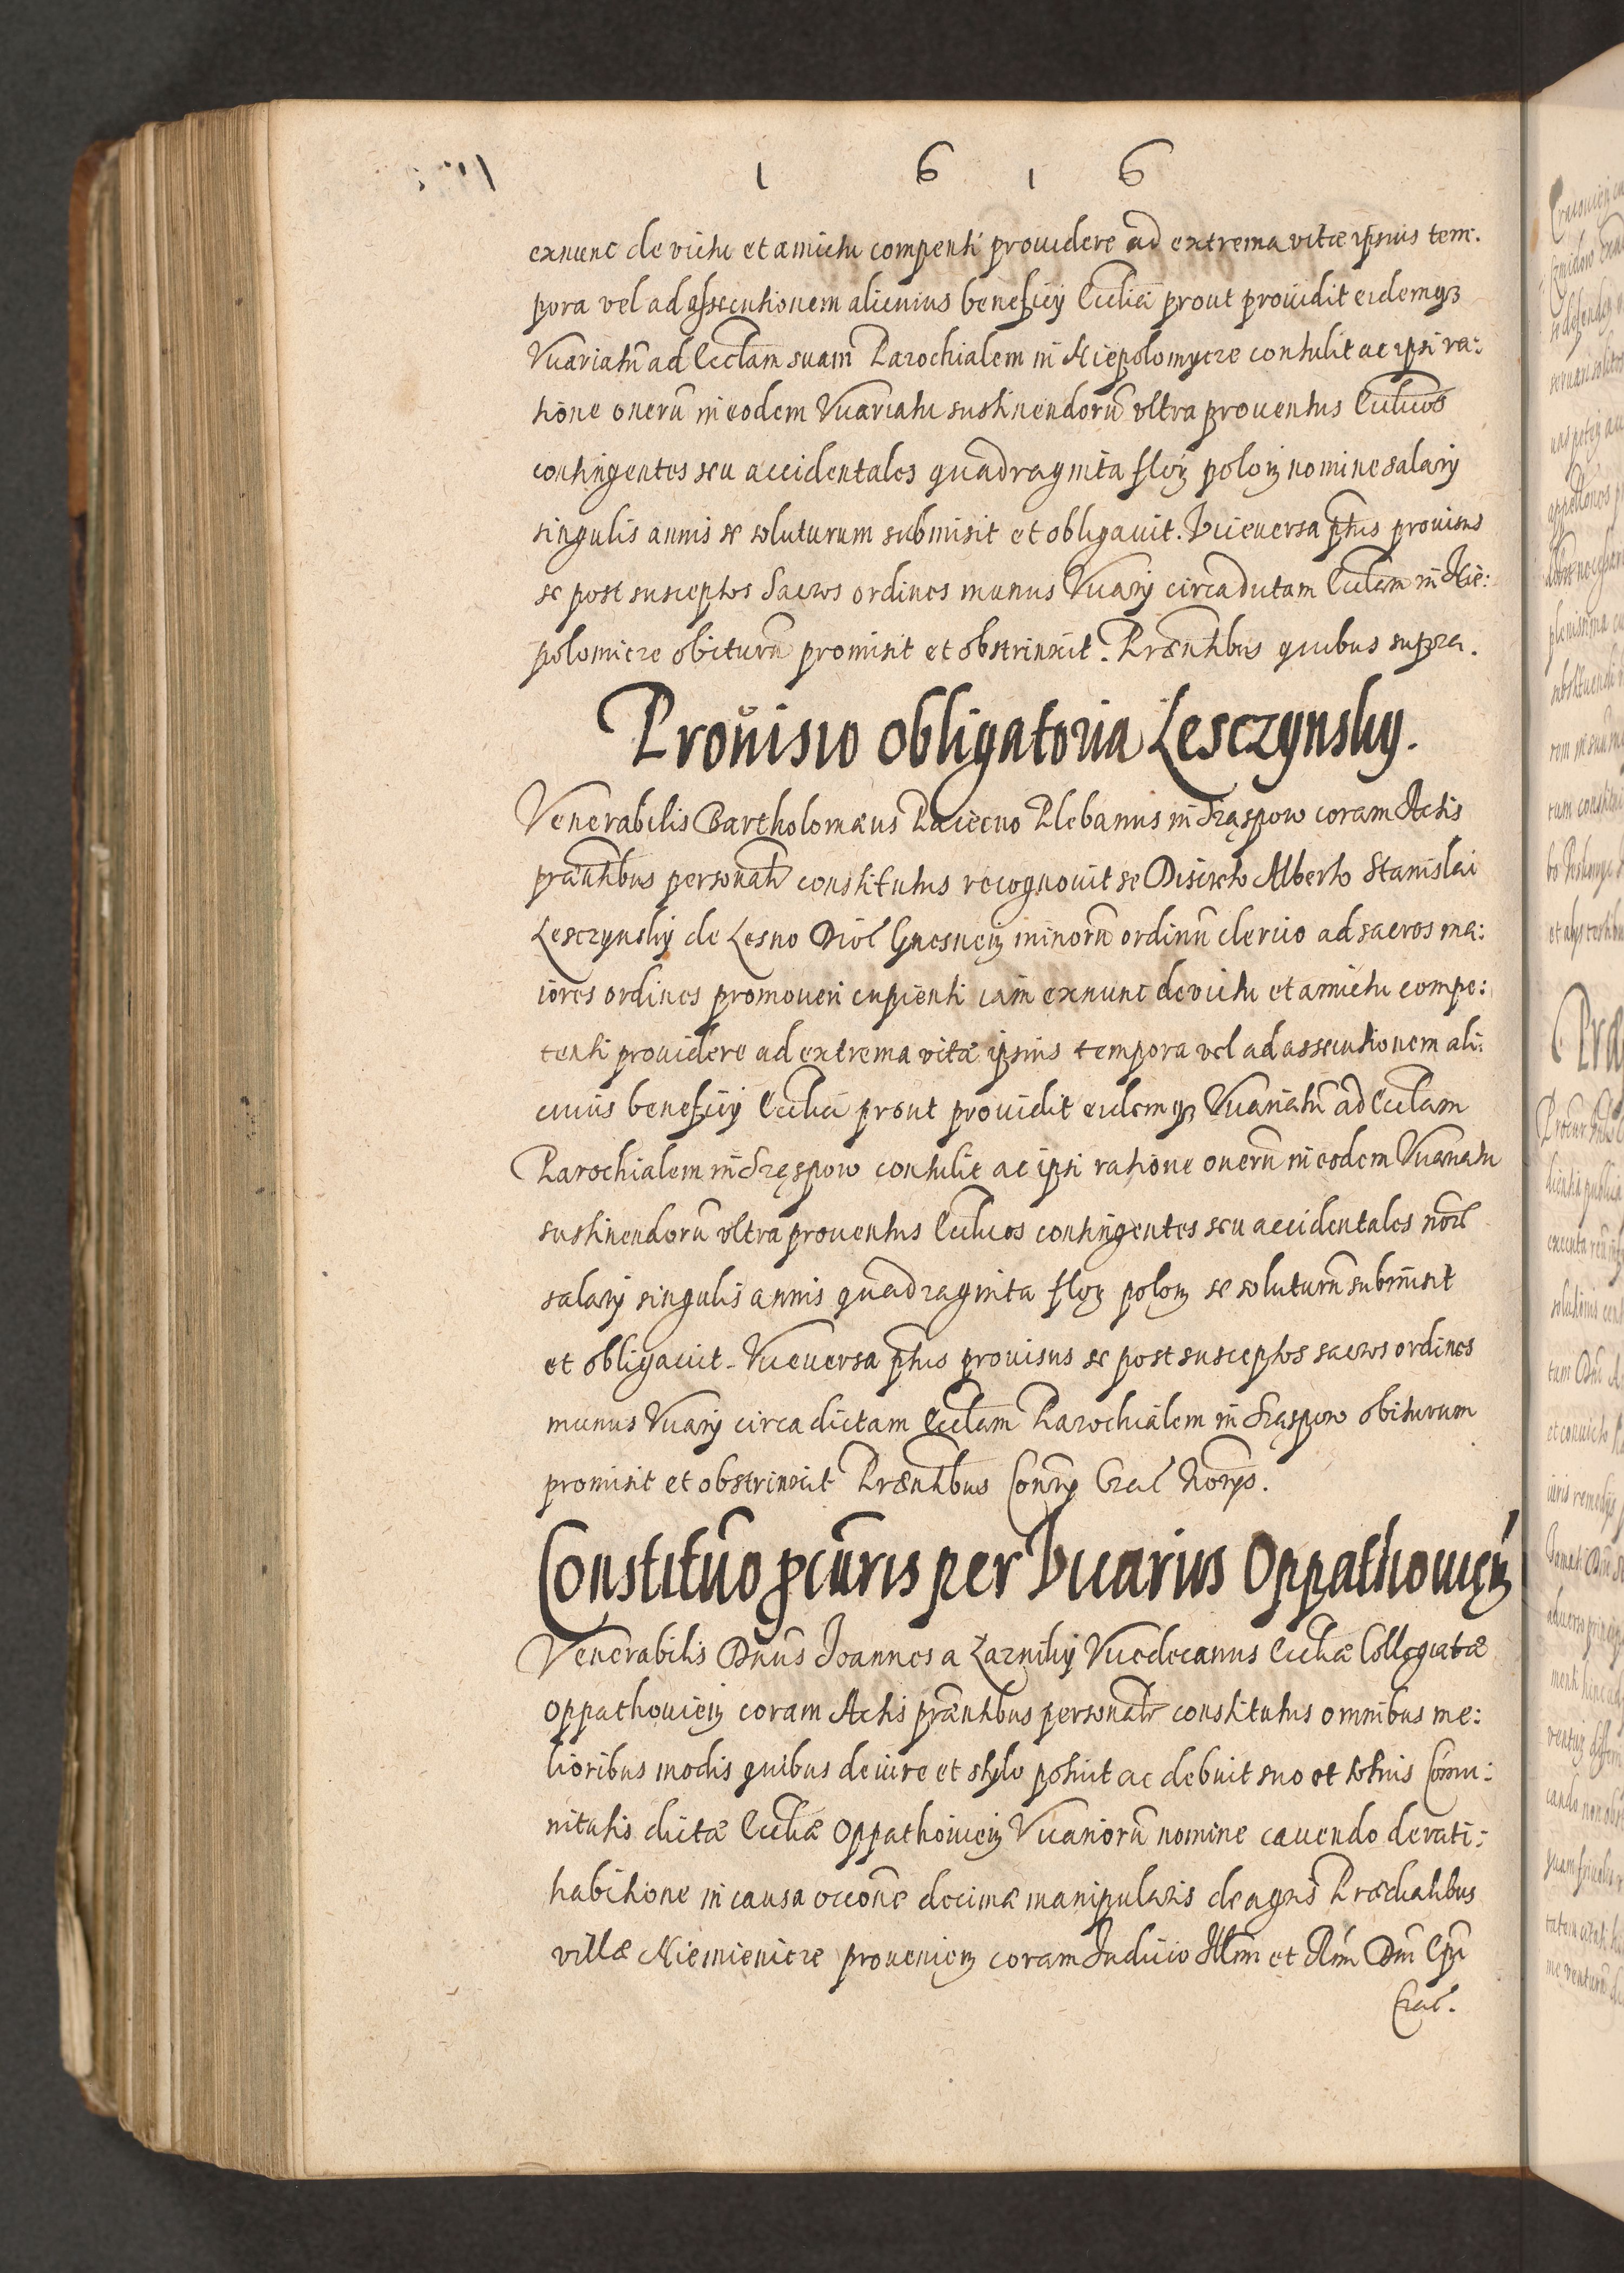 1 6 1 6
exnunc de victu et amictu compenti prouidere ad extrema vitæ ipsius tem:
pora vel ad assecutionem alicuius beneficij Ecclici prout prouidit eidemqȝ
Vicariatũ ad Ecclam suam Parochialem in Niepolomycze contulit ac ipsi ra:
tione onerũ in eodem Vicariatu sustinendorũ vltra prouentus Ecclicos
contingentes seu accidentales quadraginta floꝝ poloꝝ nomine salarij
singulis annis se soluturum submisit et obligauit. Viceuersa ptus prouisus
se post susceptos Sacros ordines munus Vicarij circa dictam Ecclam in Nie:
polomicze obiturũ promisit et obstrinxit. Præntibus quibus supra.
Prouisio obligatoria Lesczynskij.
Venerabilis Bartholomæus Paciecno Plebanus in Srąspow coram Actis
præntibus personalr constitutus recognouit se Discreto Alberto Stanislai
Lesczynskij de Lesno Dioc Gnesneñ minorũ ordinũ clerico ad sacros ma:
iores ordines promoueri cupienti iam exnunc de victu et amictu compe:
tenti prouidere ad extrema vitæ ipsius tempora vel ad assecutionem ali:
cuius beneficij Ecclici prout prouidit eidemqȝ Vicariatũ ad Ecclam
Parochialem in Sręspow contulit ac ipsi ratione onerũ in eodem Vicariatu
sustinendorũ vltra prouentus Ecclicos contingentes seu accidentales noĩe
salarij singulis annis quadraginta floꝝ poloꝝ se soluturũ submisit
et obligauit. Viceuersa ptus prouisus se post susceptos sacros ordines
munus Vicarij circa dictam Ecclam Parochialem in Srąspow obiturum
promisit et obstrinxit Præntibus Consrij Crac Norijs.
Constitutio ꝓcuris per Vicarios Oppathouieñ
Venerabilis Dnus Joannes a Zarnikij Vicedecanus Eccliæ Collegiatæ
Oppathouieñ coram Actis præntibus personalr constitutus omnibus me:
lioribus modis quibus de iure et stylo potuit ac debuit suo et totius Commu:
nitatis dictæ Eccliæ Oppathouieñ Vicariorũ nomine cauendo de rati:
habitione in causa occone decimæ manipularis de agris Prædialibus
villæ Niemienicze prouenieñ coram Iudicio Illmi et Rmi Dni Epi
Crac.